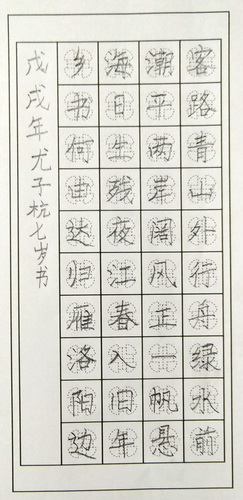 客路青山外行舟绿水前
潮平两岸阔风正一帆悬
海日生残夜江春入旧年
乡书何由达归雁洛阳边
戊戌年尤子杭七岁书